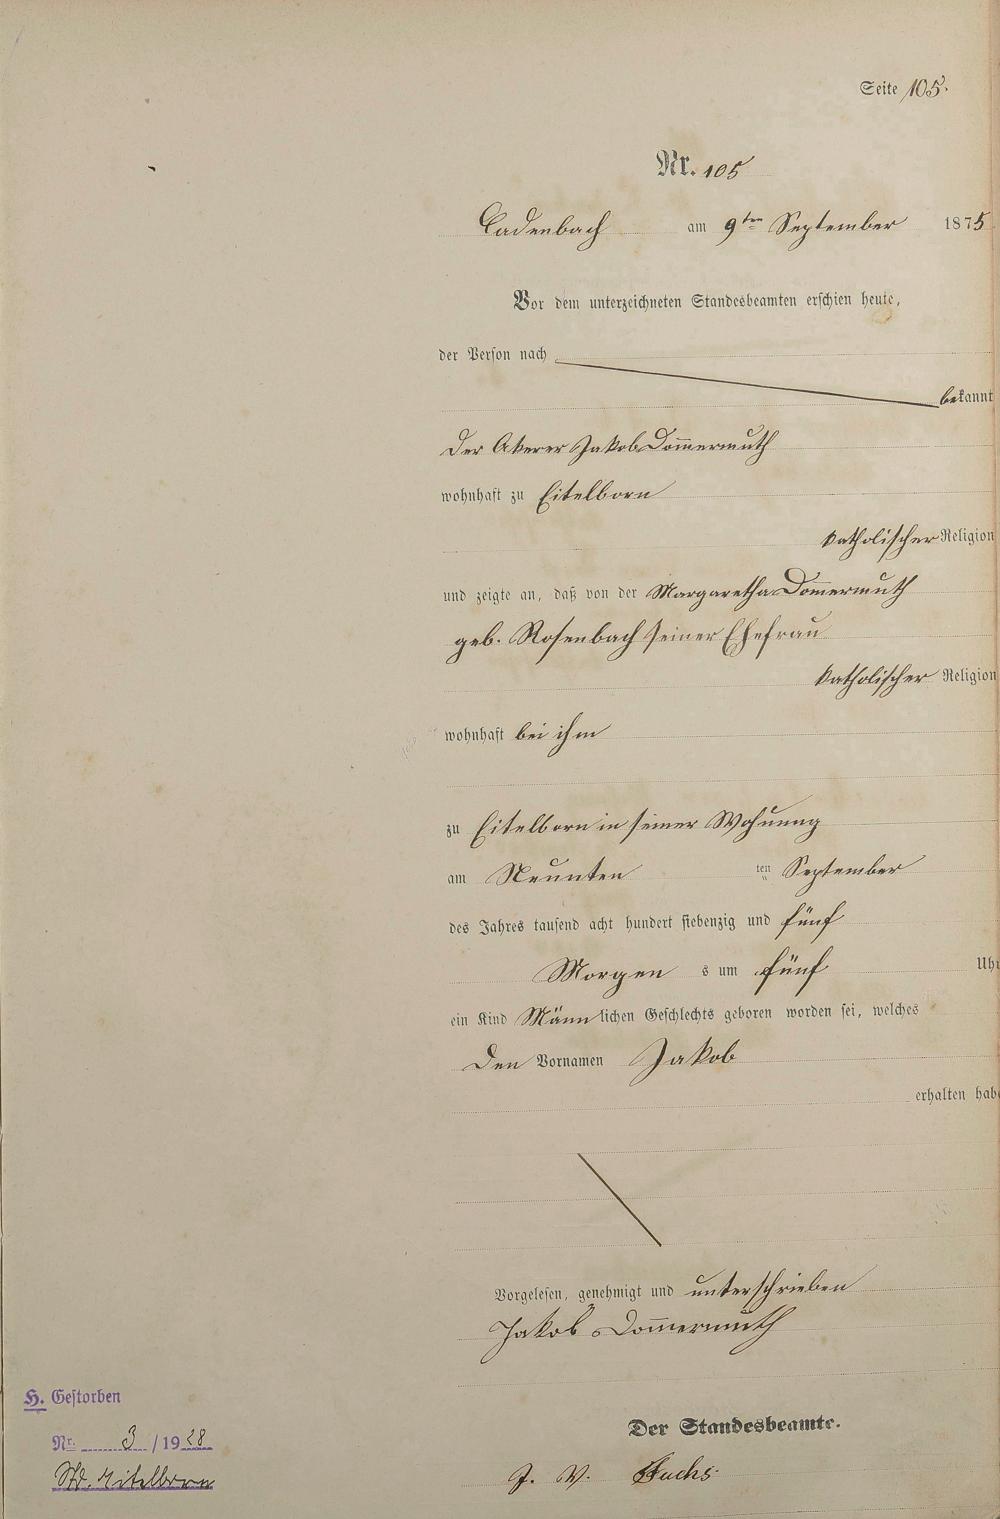 Seite 105.
Nr. 105
Cadenbach am 9ten September 1875
Vor dem unterzeichneten Standesbeamten erschien heute,
der Person nach
bekannt
Der Akerer Jakob Dom̄ermuth
wohnhaft zu Eitelborn
katholischer Religion
und zeigte an, daß von der Margaretha Dom̄ermuth
geb. Rosenbach seiner Ehefrau
katholischer Religion
wohnhaft bei ihm
zu Eitelborn in seiner Wohnung
am Neunten ten September
des Jahres tausend acht hundert siebenzig und fünf
Morgen s um fünf Uhr
ein Kind Männlichen Geschlechts geboren worden sei, welches
Den Vornamen Jakob
erhalten habe
Vorgelesen, genehmigt und unterschrieben
Jakob Dom̄ermuth
Der Standesbeamte.
J. V. Fuchs
H. Gestorben
Nr. 3 / 1928
Std. Eitelborn